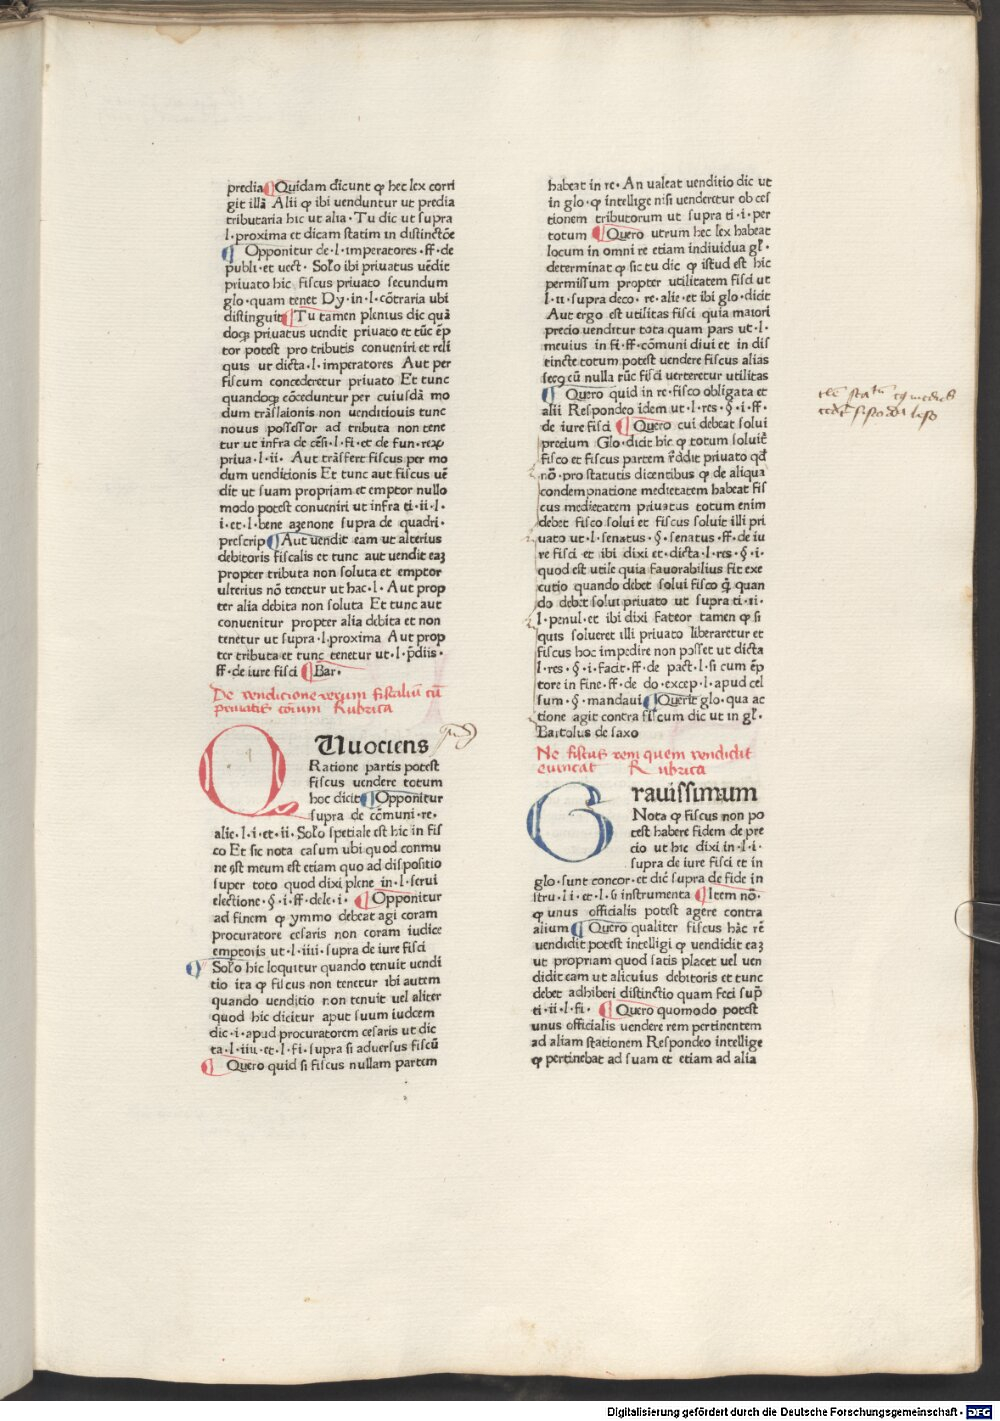 predia ¶ Quidam dicunt ꝙ hec lex corri
git illā Alii ꝙ ibi uenduntur ut predia
tributaria hic ut alia · Tu dic ut supra
l · proxima et dicam statim in distinctōe
¶ Opponitur de · l · imperatores · ff · de
publi · et uect · Solo ibi priuatus uēdit
priuato hic fiscus priuato secundum
glo · quam tenet Dy · in · l · cōtraria ubi
distinguit ¶ Tu tamen plenius dic quā
doqꝫ priuatus uendit priuato et tūc ēp
tor potest pro tributis conueniri et reli
quis ut dicta · l · imperatores Aut per
fiscum concederetur priuato Et tunc
quandoqꝫ cōceduntur per cuiusdā mo
dum trāslaionis non uenditiouis tunc
nouus possessor ad tributa non tene
tur ut infra de cēsi · l · fi · et de fun · reꝝ
priua · l · ii · Aut trāsfert fiscus per mo
dum uenditionis Et tunc aut fiscus uē
dit ut suam propriam et emptor nullo
modo potest conueniri ut infra ti · ii · l ·
i · et · l · bene azenone supra de quadri ·
prescrip ¶ Aut uendit eam ut alterius
debitoris fiscalis et tunc aut uendit eaꝫ
propter tributa non soluta et emptor
ulterius nō tenetur ut hac · l · Aut prop
ter alia debita non soluta Et tunc aut
conuenitur propter alia debita et non
tenetur ut supra · l · proxima Aut prop
ter tributa et tunc tenetur ut · l · p̄diis ·
ff · de iure fisci ¶ Bar ·
De vendicione rerum fiscaliū cū
privatis cōium Rubrica
QUuociens
Ratione partis potest
fiscus uendere totum
hoc dicit ¶ Opponitur
supra de cōmuni · re ·
alie · l · i · et · ii · Solo spetiale est hic in fis
co Et sic nota casum ubi quod conmu
ne est meum est etiam quo ad dispositio
super toto quod dixi plene in · l · serui
electione · § · i · ff · de le · i · ¶ Opponitur
ad finem ꝙ ymmo debeat agi coram
procuratore cesaris non coram iudice
emptoris ut · l · iiii · supra de iure fisci
¶ Solo hic loquitur quando tenuit uendi
tio ita ꝙ fiscus non tenetur ibi autem
quando uenditio non tenuit uel aliter
quod hic dicitur aput suum iudcem
dic · i · apud procuratorem cesaris ut dic
ta · l · iiii · et · l · fi · supra si aduersus fiscū
¶ Quero quid si fiscus nullam partem
habeat in re · An ualeat uenditio dic ut
in glo · ꝙ intellige nisi uenderetur ob ces
tionem tributorum ut supra ti · i · per
totum ¶ Quero utrum hec lex habeat
locum in omni re etiam indiuidua gl̄ ·
determinat ꝙ sic tu dic ꝙ istud est hic
permissum propter utilitatem fisci ut
l · ii · supra deco · re · alie · et ibi glo · dicit
Aut ergo est utilitas fisci quia maiori
precio uenditur tota quam pars ut · l ·
meuius in fi · ff · cōmuni diui et in dis
tincte totum potest uendere fiscus alias
secꝰ cū nulla tūc fisci uerteretur utilitas
¶ Quero quid in re · fisco obligata et
alii Respondeo idem ut · l · res · § · i · ff ·
de iure fisci ¶ Quero cui debeat solui
precium Glo · dicit hic ꝙ totum soluit̄
fisco et fiscus partem r̄ddit priuato qd̄
nō · pro statutis dicentibus ꝙ de aliqua
condempnatione medietatem habeat fis
cus medietatem priuatus totum enim
debet fisco solui et fiscus soluit illi pri
uato ut · l · senatus · § · senatus · ff · de iu
re fisci et ibi dixi et · dicta · l · res · § · i ·
quod est utile quia fauorabilius fit exe
cutio quando debet solui fisco q̄ quan
do debet solui priuato ut supra ti · ii ·
l · penul · et ibi dixi Fateor tamen ꝙ si
quis solueret illi priuato liberaretur et
fiscus hoc impedire non posset ut dicta
l · res · § · i · facit · ff · de pact · l · si cum ēp
tore in fine · ff · de do · excep · l · apud cel
sum · § · mandaui ¶ Querit glo · qua ac
tione agit contra fiscum dic ut in gl̄ ·
Bartolus de saxo
Ne fiscus rem quem vendidit
evincat Rubrica
Grauissimum
Nota ꝙ fiscus non po
test habere fidem de pre
cio ut hic dixi in · l · i ·
supra de iure fisci et in
glo · sunt concor · et dic̄ supra de fide in
stru · l i · et · l · si instrumenta ¶ Item nō ·
ꝙ unus officialis potest agere contra
alium ¶ Quero qualiter fiscus hāc rē
uendidit potest intelligi ꝙ uendidit eaꝫ
ut propriam quod satis placet uel uen
didit eam ut alicuius debitoris et tunc
debet adhiberi distinctio quam feci sup̄
ti · ii · l · fi · ¶ Quero quomodo potest
unus officialis uendere rem pertinentem
ad aliam stationem Respondeo intellige
ꝙ pertinebat ad suam et etiam ad alia
Digitalisierung gefördert durch die Deutsche Forschungsgemeinschaft - DFG